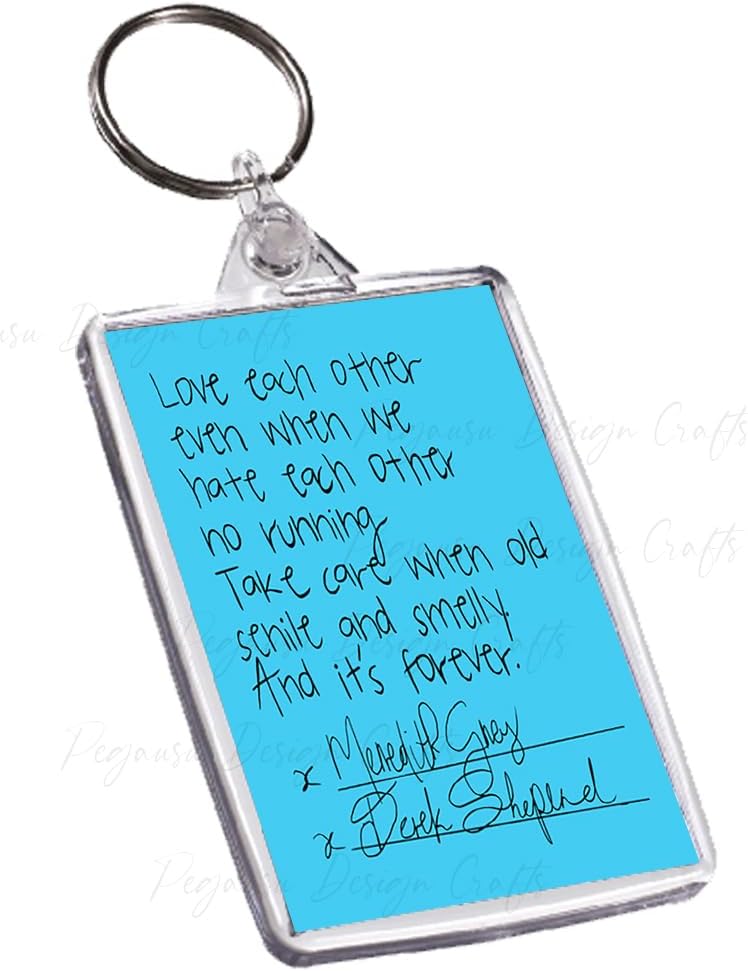 Love each other
even when we
hate each other
no running
Take care when old
senile and smelly.
And it's forever.
x Meredith Grey
x Derek Sheperd
Pegausu Design Crafts
Pegausu Design Crafts
Pegausu Design Crafts
Pegausu Design Crafts
Pegausu Design Crafts
Pegausu Design Crafts